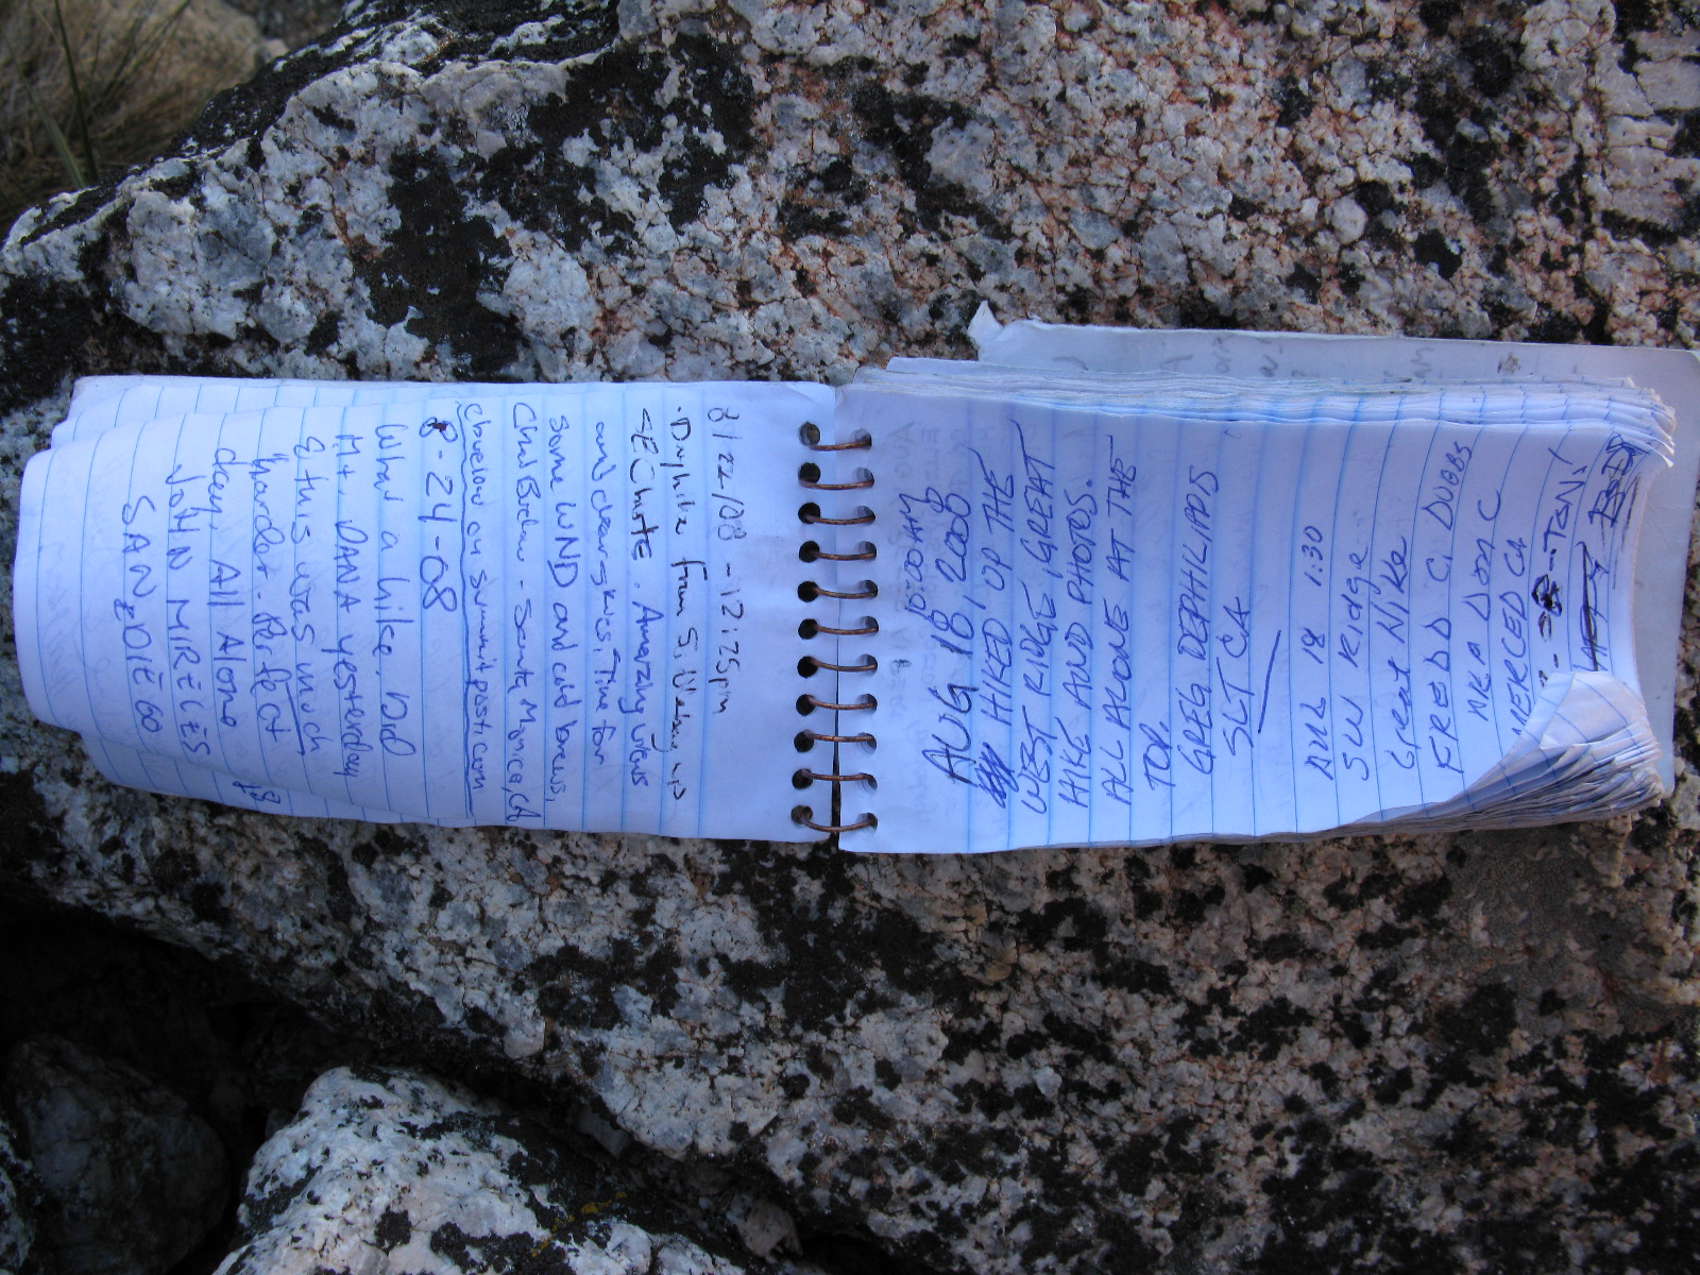 10:00 AM
AUG 18, 2008
HIKED UP THE
WEST RIDGE, GREAT
HIKE AND PHOTOS.
ALL ALONE AT THE
TOP.
GREG DEPHILIPPIS
SLT CA
AUG 18 1:30
SW Ridge
Great Hike
FRED D C. DUBBS
AKA DOM C
MERCED CA
8/22/08 - 12:25pm
Dayhike from S,
up
SE Chute. Amazing views
and clear skies. Time for
some WIND and cold brews.
Chris Below - Santa Monica, CA
cbelow on summitpost.com
8-24-08
What a hike. Did
Mt. DANA yesterday
& this was much
harder. Perfect
day, All Alone
JOHN MIRELES
SAN DIEGO